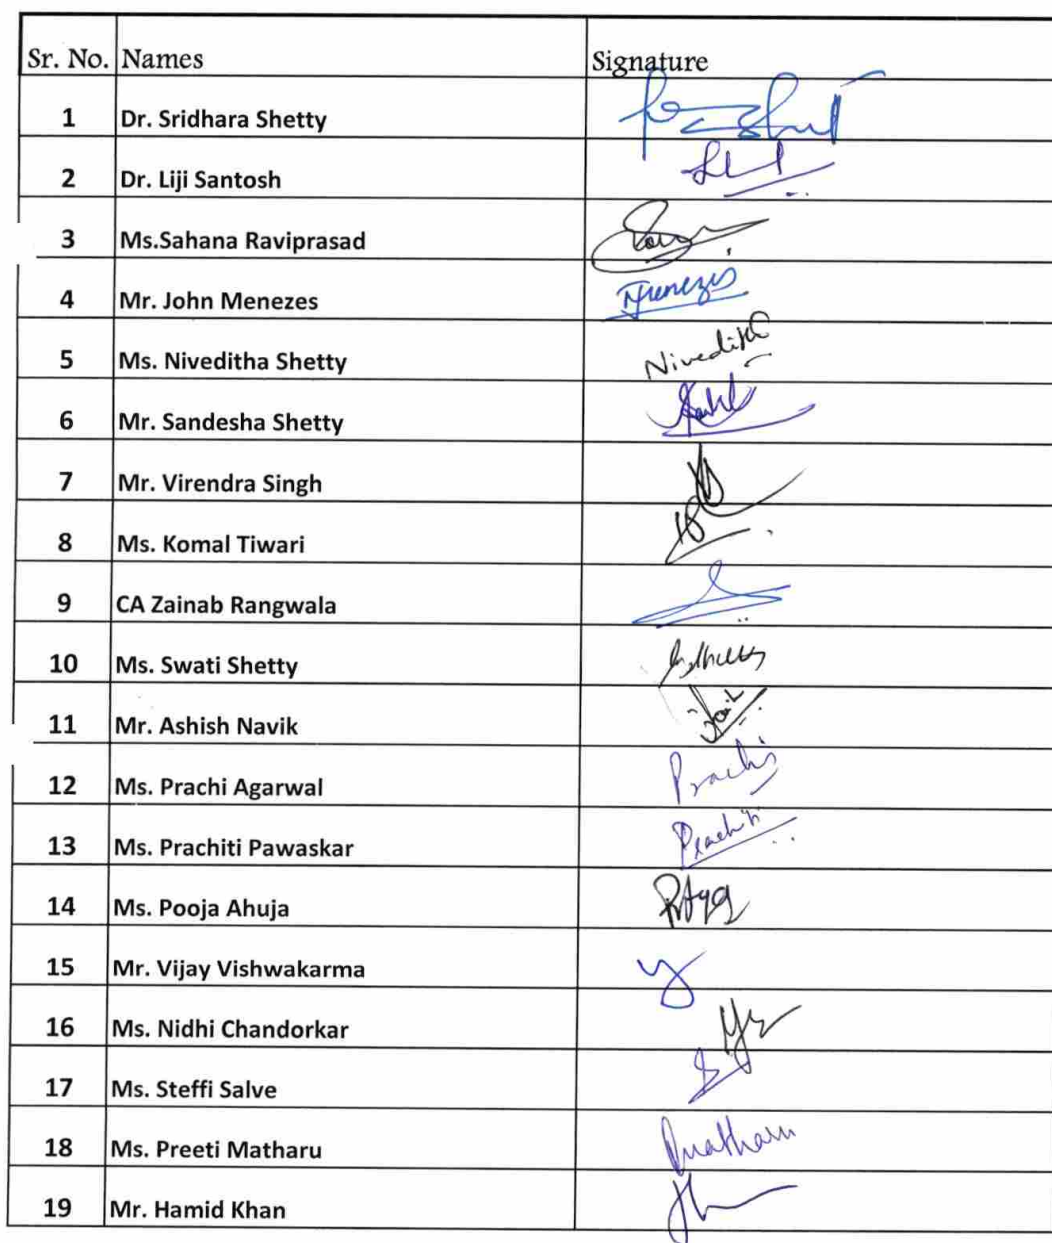 Sr. No. Names Signature
1 Dr. Sridhara Shetty
2 Dr. Liji Santosh
3 Ms.Sahana Raviprasad
4 Mr. John Menezes Menezes
5 Ms. Niveditha Shetty Niveditha
6 Mr. Sandesha Shetty
7 Mr. Virendra Singh
8 Ms. Komal Tiwari
9 CA Zainab Rangwala
10 Ms. Swati Shetty
11 Mr. Ashish Navik
12 Ms. Prachi Agarwal Prachi
13 Ms. Prachiti Pawaskar Prachiti
14 Ms. Pooja Ahuja
15 Mr. Vijay Vishwakarma
16 Ms. Nidhi Chandorkar
17 Ms. Steffi Salve
18 Ms. Preeti Matharu
19 Mr. Hamid Khan